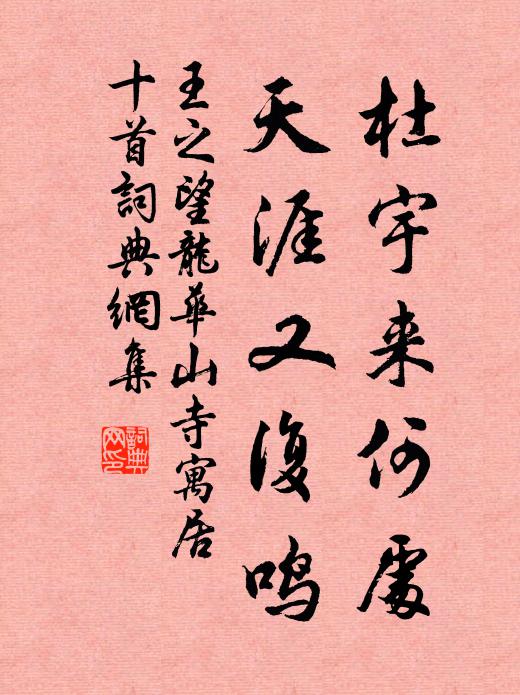 杜宇来何處
天涯又復鸣
王之望龍華山寺寓居
十首詞典網集
詞典網印